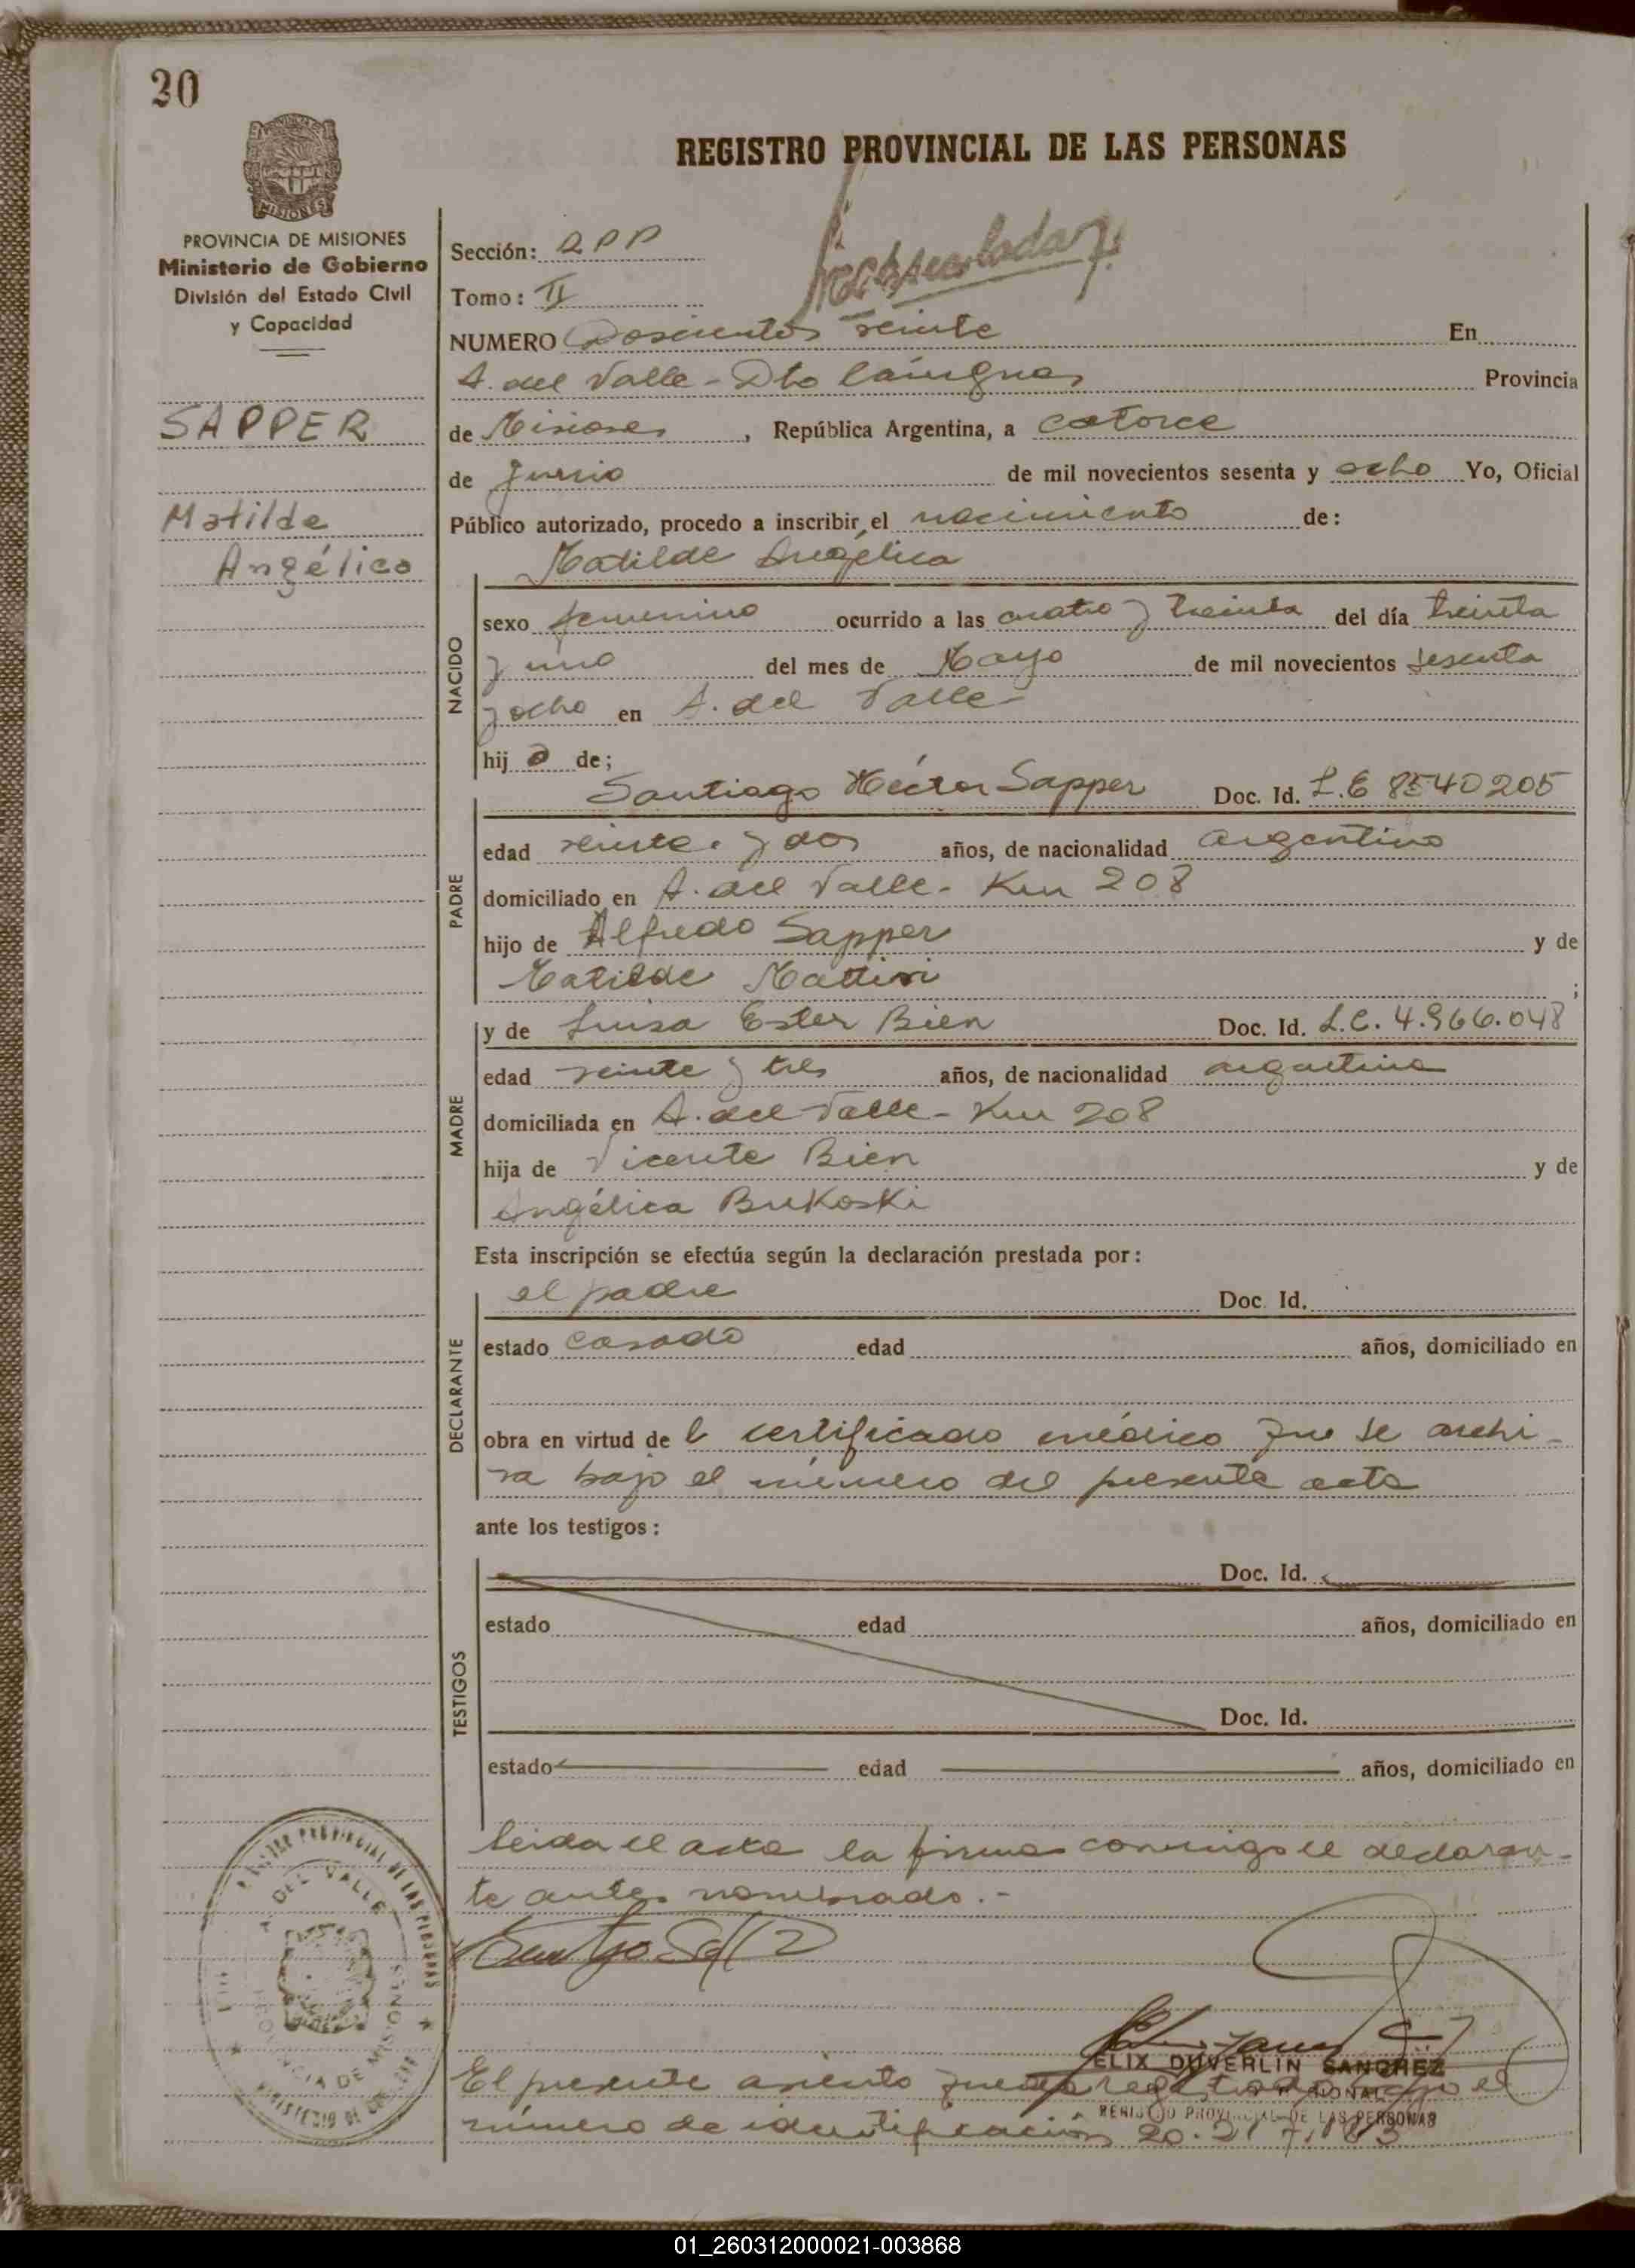 20
REGISTRO PROVINCIAL DE LAS PERSONAS
PROVINCIA DE MISIONES
Ministerio de Gobierno
División del Estado Civil
y Capacidad
SAPPER
Matilde
Angélica
Sección:
Tomo: II
NUMERO Doscientos veinte En
A. del Valle - Dto Cainguas Provincia
de Misiones, República Argentina, a catorce
de Junio de mil novecientos sesenta y ocho Yo, Oficial
Público autorizado, procedo a inscribir el nacimiento de:
Matilde Angélica
NACIDO
sexo femenino ocurrido a las cuatro y treinta del día treinta
y uno del mes de Mayo de mil novecientos sesenta
y ocho en A. del Valle
hija de;
Santiago Héctor Sapper Doc. Id. L.E 8540205
PADRE
edad veinte y dos años, de nacionalidad argentino
domiciliado en A. del Valle - Km 208
hijo de Alfredo Sapper y de
Matilde ;
MADRE
y de Luisa Ester Bien Doc. Id. L.C. 4.966.048
edad veinte y tres años, de nacionalidad argentina
domiciliada en A. del Valle - Km 208
hija de Vicente Bien y de
Angélica Bukoski
Esta inscripción se efectúa según la declaración prestada por:
DECLARANTE
el padre Doc. Id.
estado casado edad años, domiciliado en
obra en virtud de l certificado médico que se archi-
va bajo el número del presente acta
ante los testigos:
TESTIGOS
Doc. Id.
estado edad años, domiciliado en
Doc. Id.
estado edad años, domiciliado en
leida el acta la firma conmigo el declaran-
te antes nombrado.-
FELIX DUVERLIN SANCHEZ
REGISTRO PROVINCIAL DE LAS PERSONAS
El presente asiento queda registrado bajo el
número de identificación
A. DEL VALLE
PROVINCIA DE MISIONES
01_260312000021-003868